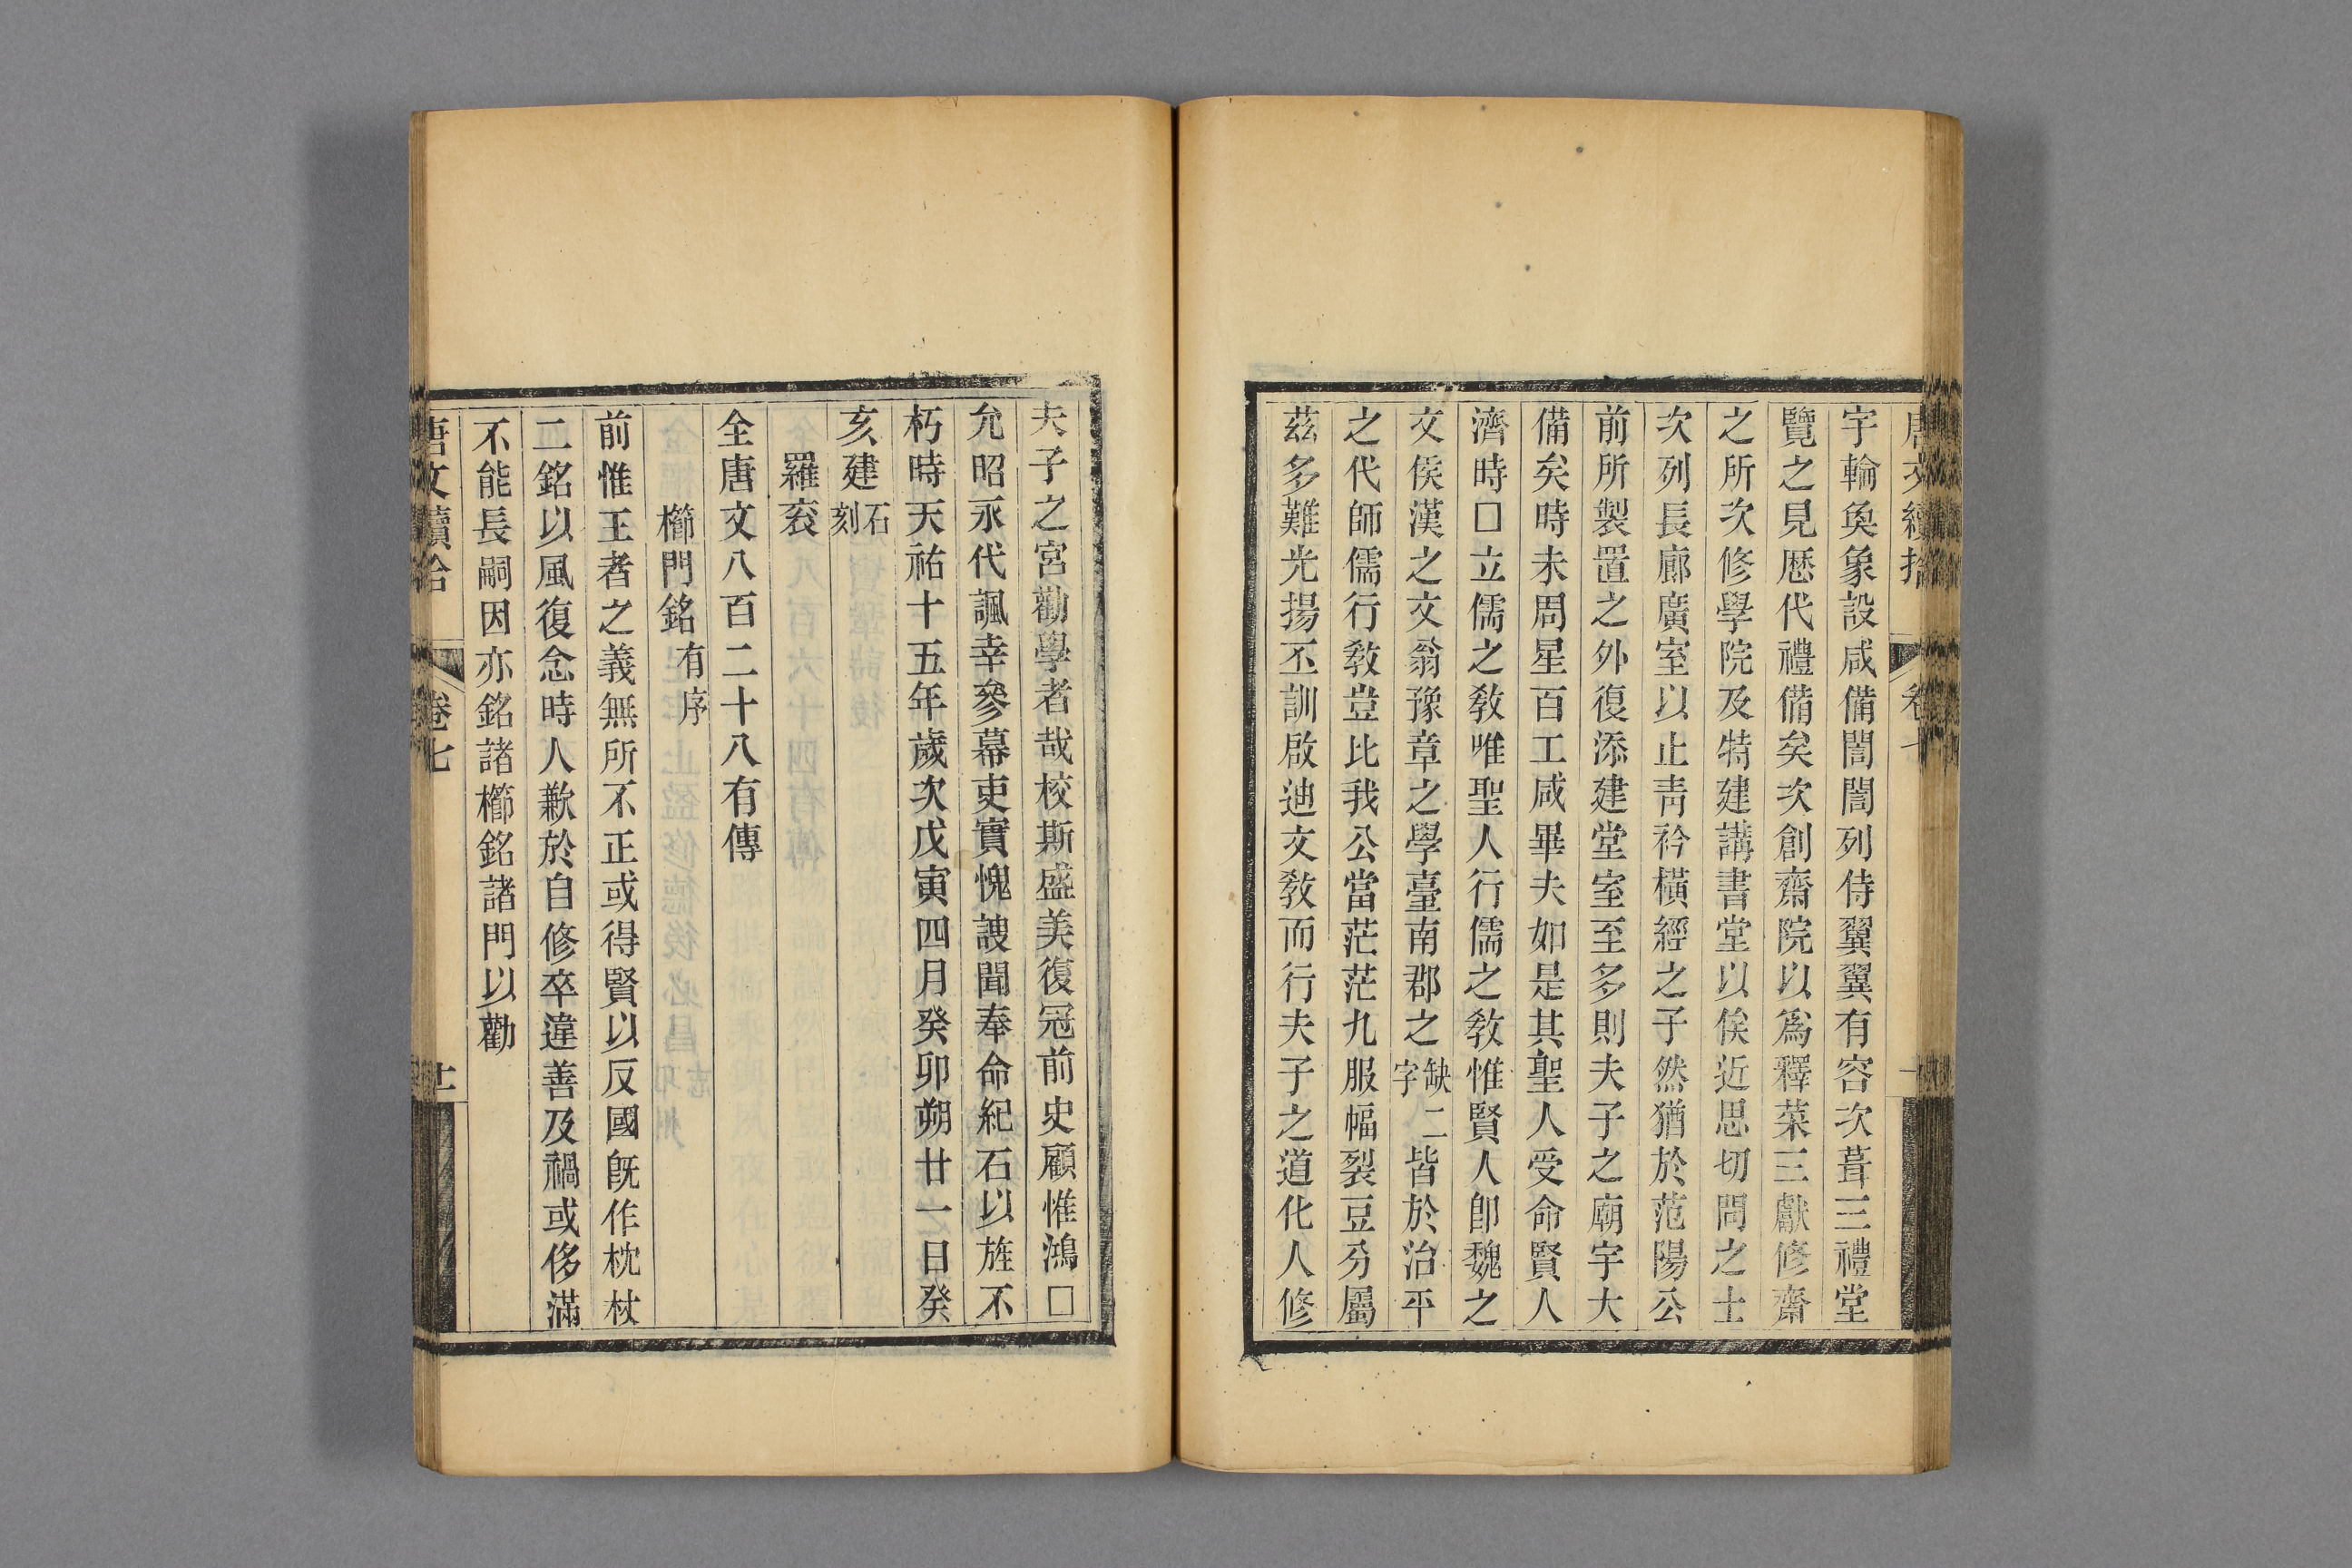 宇輪奐象設咸備誾誾列侍翼翼有容次葺三禮堂
覽之見歷代禮備矣次創齋院以爲釋菜三獻修齋
之所次修學院及特建講書堂以俟近思切問之士
次列長廊廣室以止靑衿橫經之子然猶於范陽公
前所製置之外復添建堂室至多則夫子之廟宇大
備矣時未周星百工咸畢夫如是其聖人受命賢人
濟時□立儒之敎唯聖人行儒之敎惟賢人卽魏之
文侯漢之文翁豫章之學臺南郡之缺二字皆於治平
之代師儒行敎豈比我公當茫茫九服幅裂豆分屬
茲多難光揚丕訓啟迪文敎而行夫子之道化人修
夫子之宮勸學者哉校斯盛美復冠前史顧惟鴻□
允昭永代諷幸參幕吏實愧謏聞奉命紀石以旌不
朽時天祐十五年歲次戊寅四月癸卯朔廿一日癸
亥建石刻
羅袞
全唐文八百二十八有傳
櫛門銘有序
前惟王者之義無所不正或得賢以反國旣作枕杖
二銘以風復念時人歉於自修卒違善及禍或侈滿
不能長嗣因亦銘諸櫛銘諸門以勸
唐文續拾
卷七